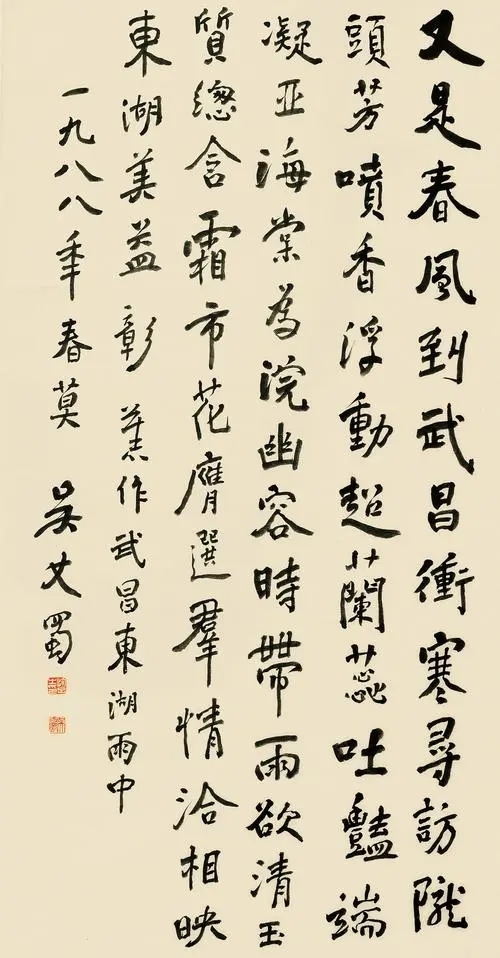 又是春風到武昌衝寒尋訪隴
頭芳噴香浮動超蘭蕊吐豔端
凝亚海棠為浣幽容時帶雨欲清玉
質總含霜市花膺選羣情洽相映
東湖美益彰 作武昌東湖雨中
一九八八年春莫 吳丈蜀